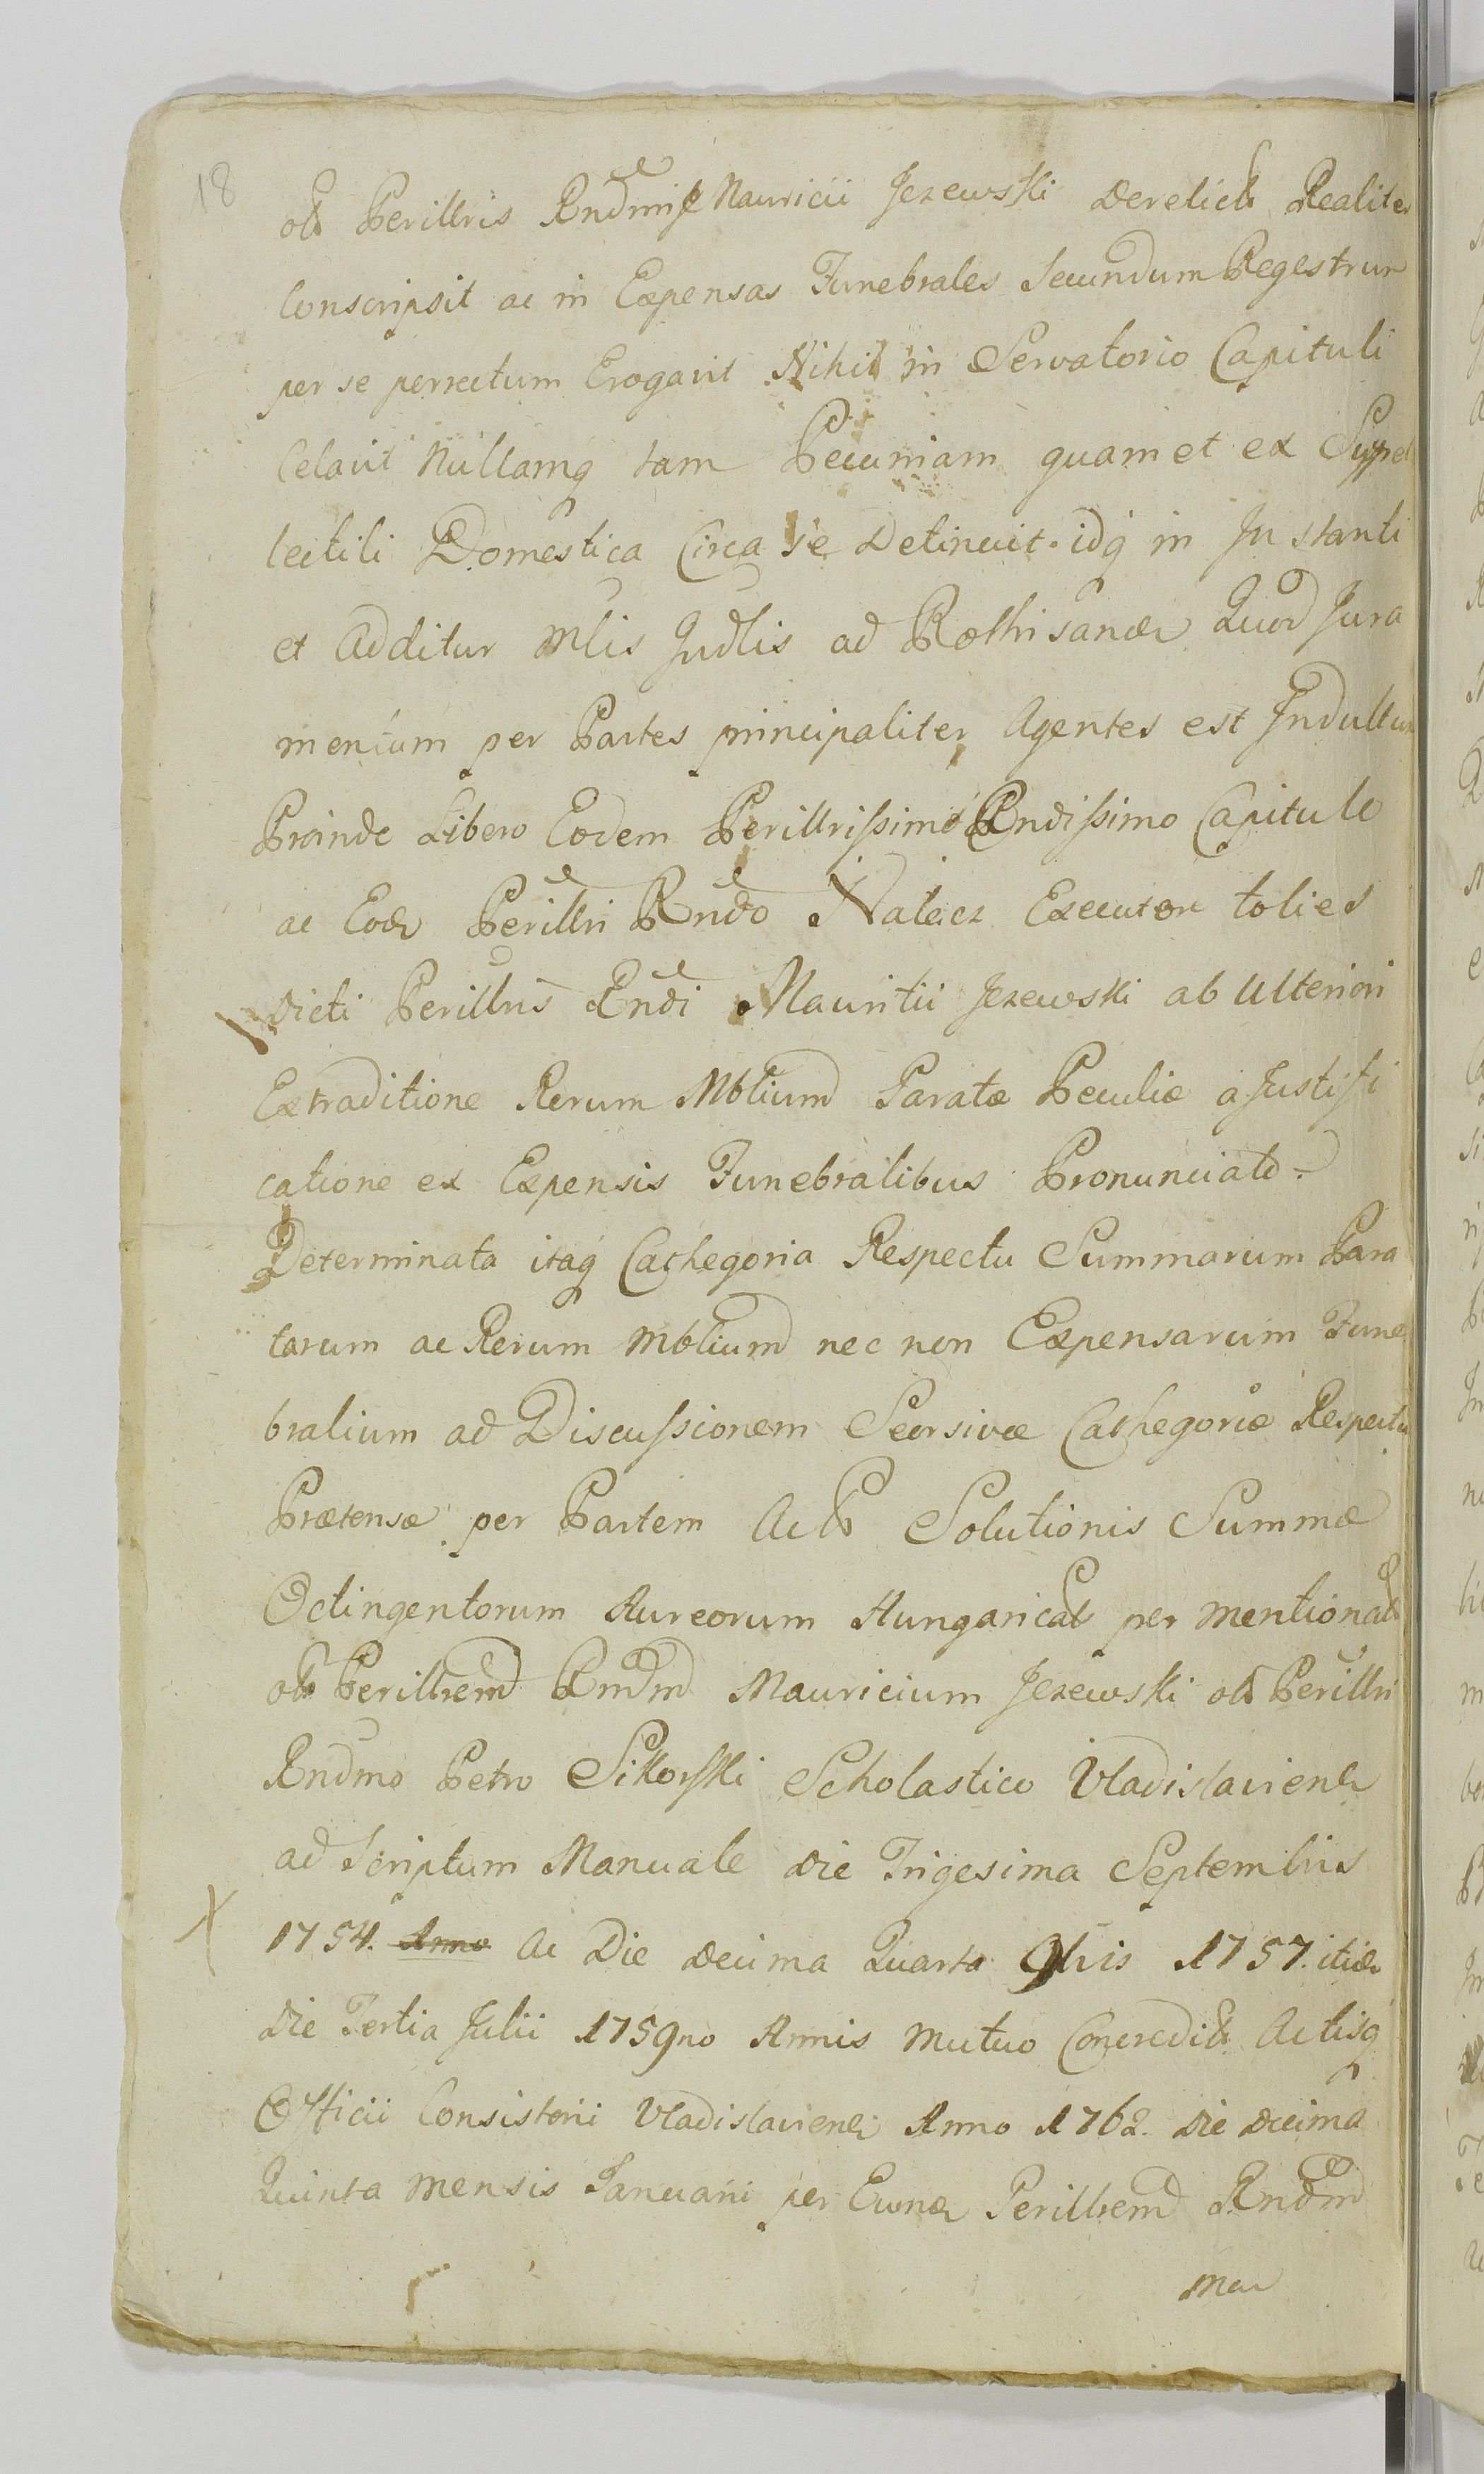 18
olim Perillris Rndmi Mauricii Jezewski derelict Realiter
Conscripsit ac in Expensas Funebrales Secundum Regestrum
per se porrectum Erogavit Nihil in Servatorio Capituli
Celavit Nullamq tam Pecuniam quam et ex Suppel
lectili Domestica Circa se Detinuit. idq in Instanti
et Additur Mlis Judlis ad Rothisandr Quod Jura
mentum per Partes principaliter Agentes est Indultum
Proinde Libero Eodem Perillrissimo Rndissimo Capitulo
ac Eodr Perillri Rndo Natecz Executore toties
dicti Perillris Rndi Mauritii Jezewski ab Ulteriori
Extraditione Rerum Mblium Paratæ Peculiæ a Justifi
catione ex Expensis Funebralibus Pronunciato.
Determinata itaq Cathegoria Respectu Summarum Para
tarum ac Rerum Mblium nec non Expensarum Fune
bralium ad Discussionem Seorsivæ Cathegoriæ Respectu
Prætensæ per Partem Act Solutionis Summæ
Octingentorum Aureorum Hungarical per mentionat
olim Perillrem Rndmm Mauricium Jezewski olim Perillri
Rndmo Petro Sikorski Scholastico Vladislaviensi
ad Scriptum Manuale die Trigesima Septembris
X 1754. Anno Ac Die decima Quarta 9bris 1757. itidr
die Tertia Julii 1759no Annis mutuo Concredit Actisq
Officii Consistorii Vladislaviensi Anno 1762. die decima
Quinta mensis Januarii per Eundr Perillrem Rndmm
Mau